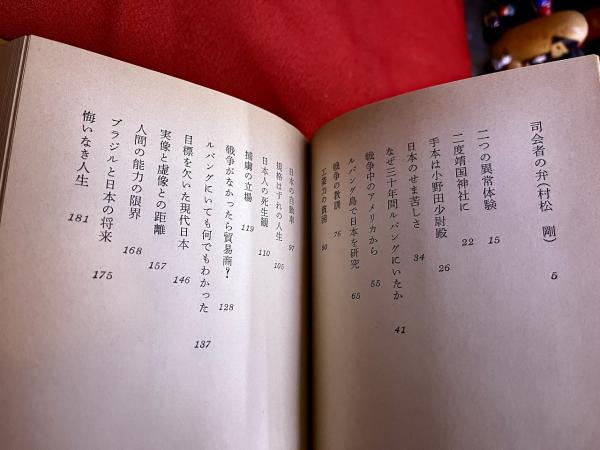 司会者の弁(村松 剛) 5
二つの異常体験 15
二度靖国神社に 22
手本は小野田少尉殿 26
日本のせま苦しさ 34
なぜ三十年間ルバングにいたか 41
戦争中のアメリカから 55
ルバング島で日本を研究 65
戦争の教訓 76
工業力の貧困 90
日本の自動車 97
規格はずれの人生 105
日本人の死生観 110
捕虜の立場 119
戦争がなかったら貿易商? 128
ルバングにいても何でもわかった 137
目標を欠いた現代日本 146
実像と虚像との距離 157
人間の能力の限界 168
ブラジルと日本の将来 175
悔いなき人生 181